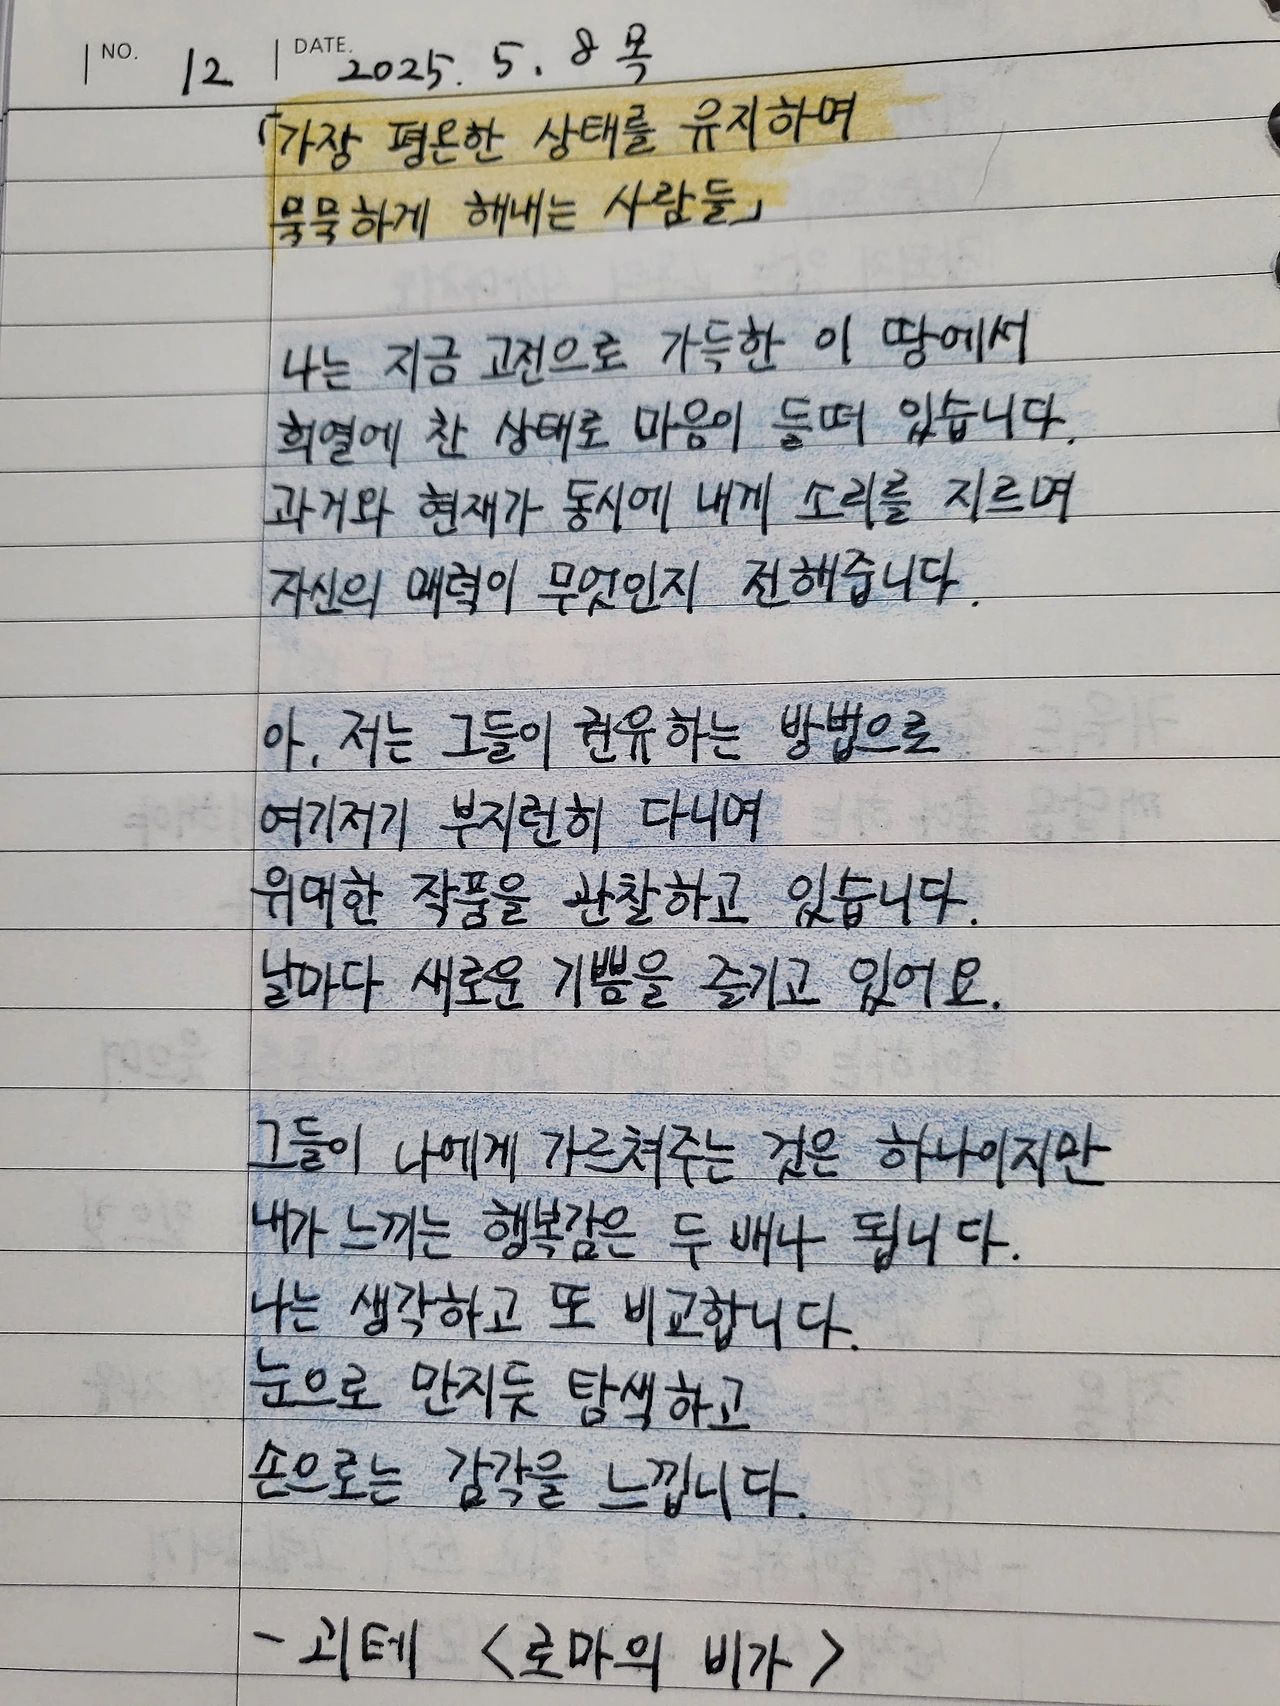 NO. 12 DATE. 2025. 5. 8 목
「가장 평온한 상태를 유지하며
묵묵하게 해내는 사람들」
나는 지금 고전으로 가득한 이 땅에서
희열에 찬 상태로 마음이 들떠 있습니다.
과거와 현재가 동시에 내게 소리를 지르며
자신의 매력이 무엇인지 전해줍니다.
아, 저는 그들이 권유하는 방법으로
여기저기 부지런히 다니며
위대한 작품을 관찰하고 있습니다.
날마다 새로운 기쁨을 즐기고 있어요.
그들이 나에게 가르쳐주는 것은 하나이지만
내가 느끼는 행복감은 두 배나 됩니다.
나는 생각하고 또 비교합니다.
눈으로 만지듯 탐색하고
손으로는 감각을 느낍니다.
- 괴테 <로마의 비가>